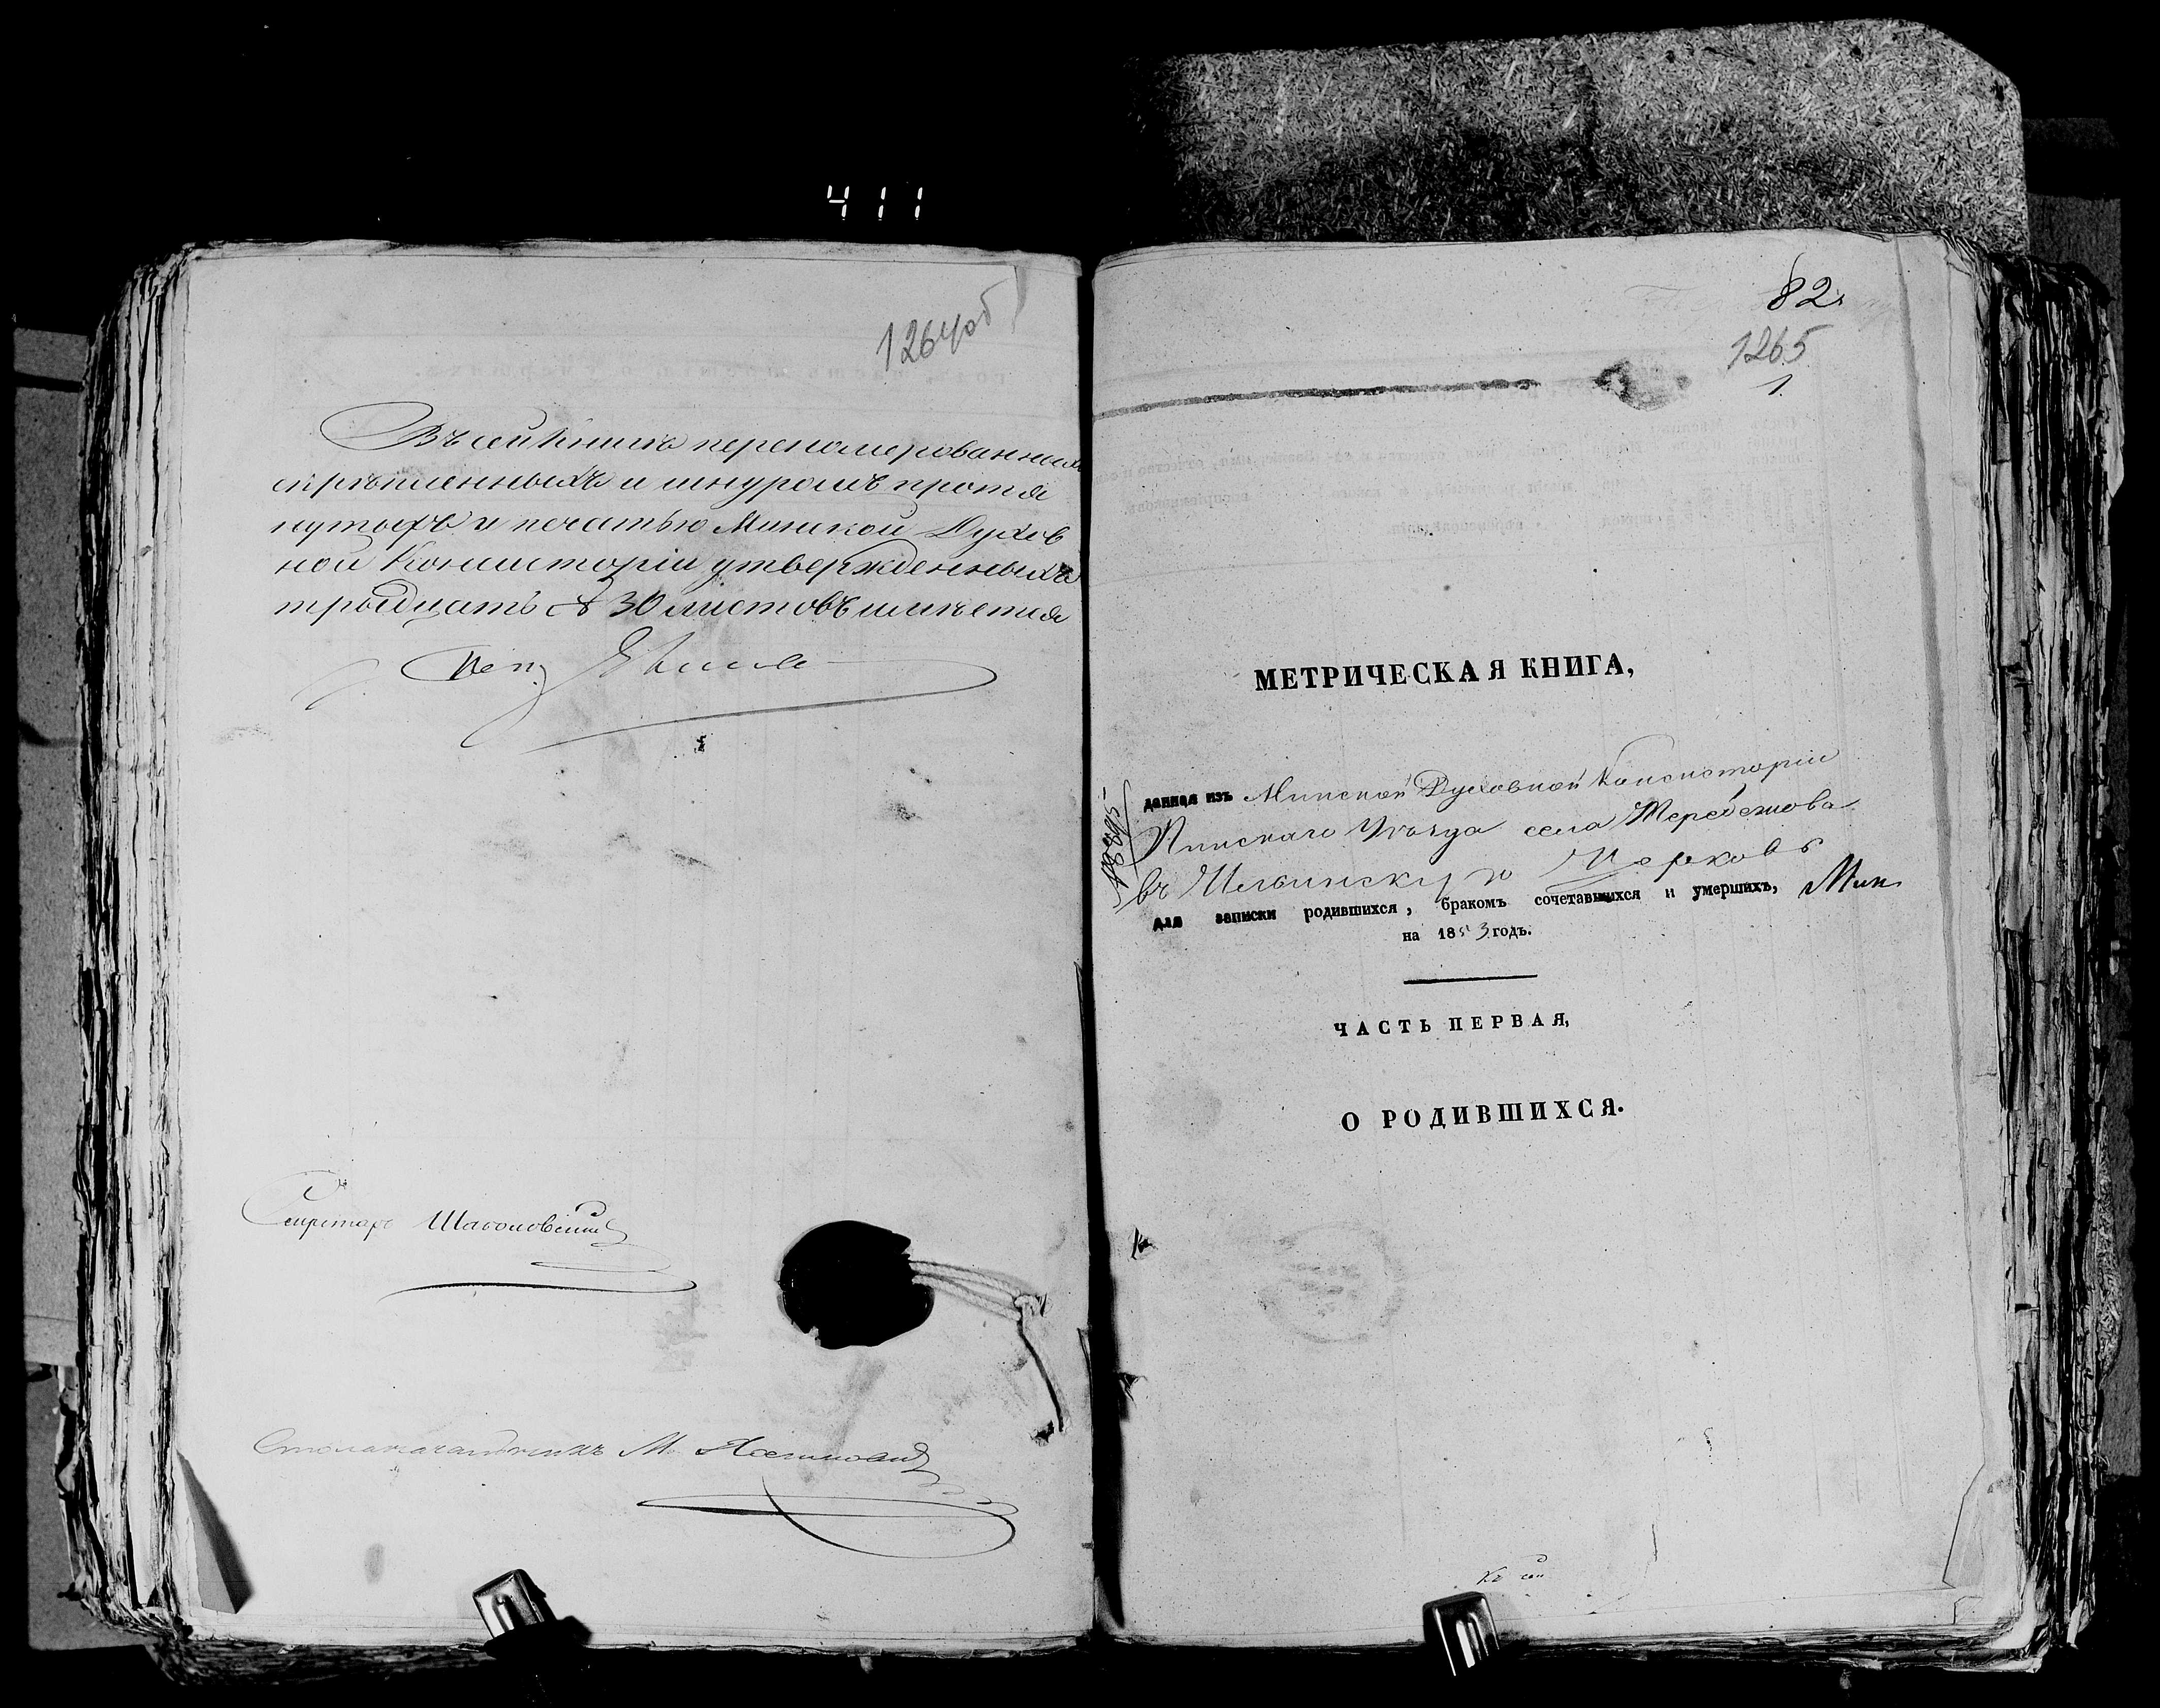 411
1264об
Въ сей книгѣ перенумерованныхъ
скрѣпленныхъ и шнуромъ протя
нутыхъ и печатью Минской Духов
ной Консисторіи утвержденныхъ
тридцать 30 листовъ имѣется
Секретарь
Столоначальникъ М.
82
1265
1.
МЕТРИЧЕСКАЯ КНИГА,
данная изъ Минской Духовной Консисторіи
Пинскаго Уѣзда села Теребежова
въ Ильинскую Церковь
для записки родившихся, бракомъ сочетавшихся и умершихъ,
на 1853 годъ.
ЧАСТЬ ПЕРВАЯ,
О РОДИВШИХСЯ.